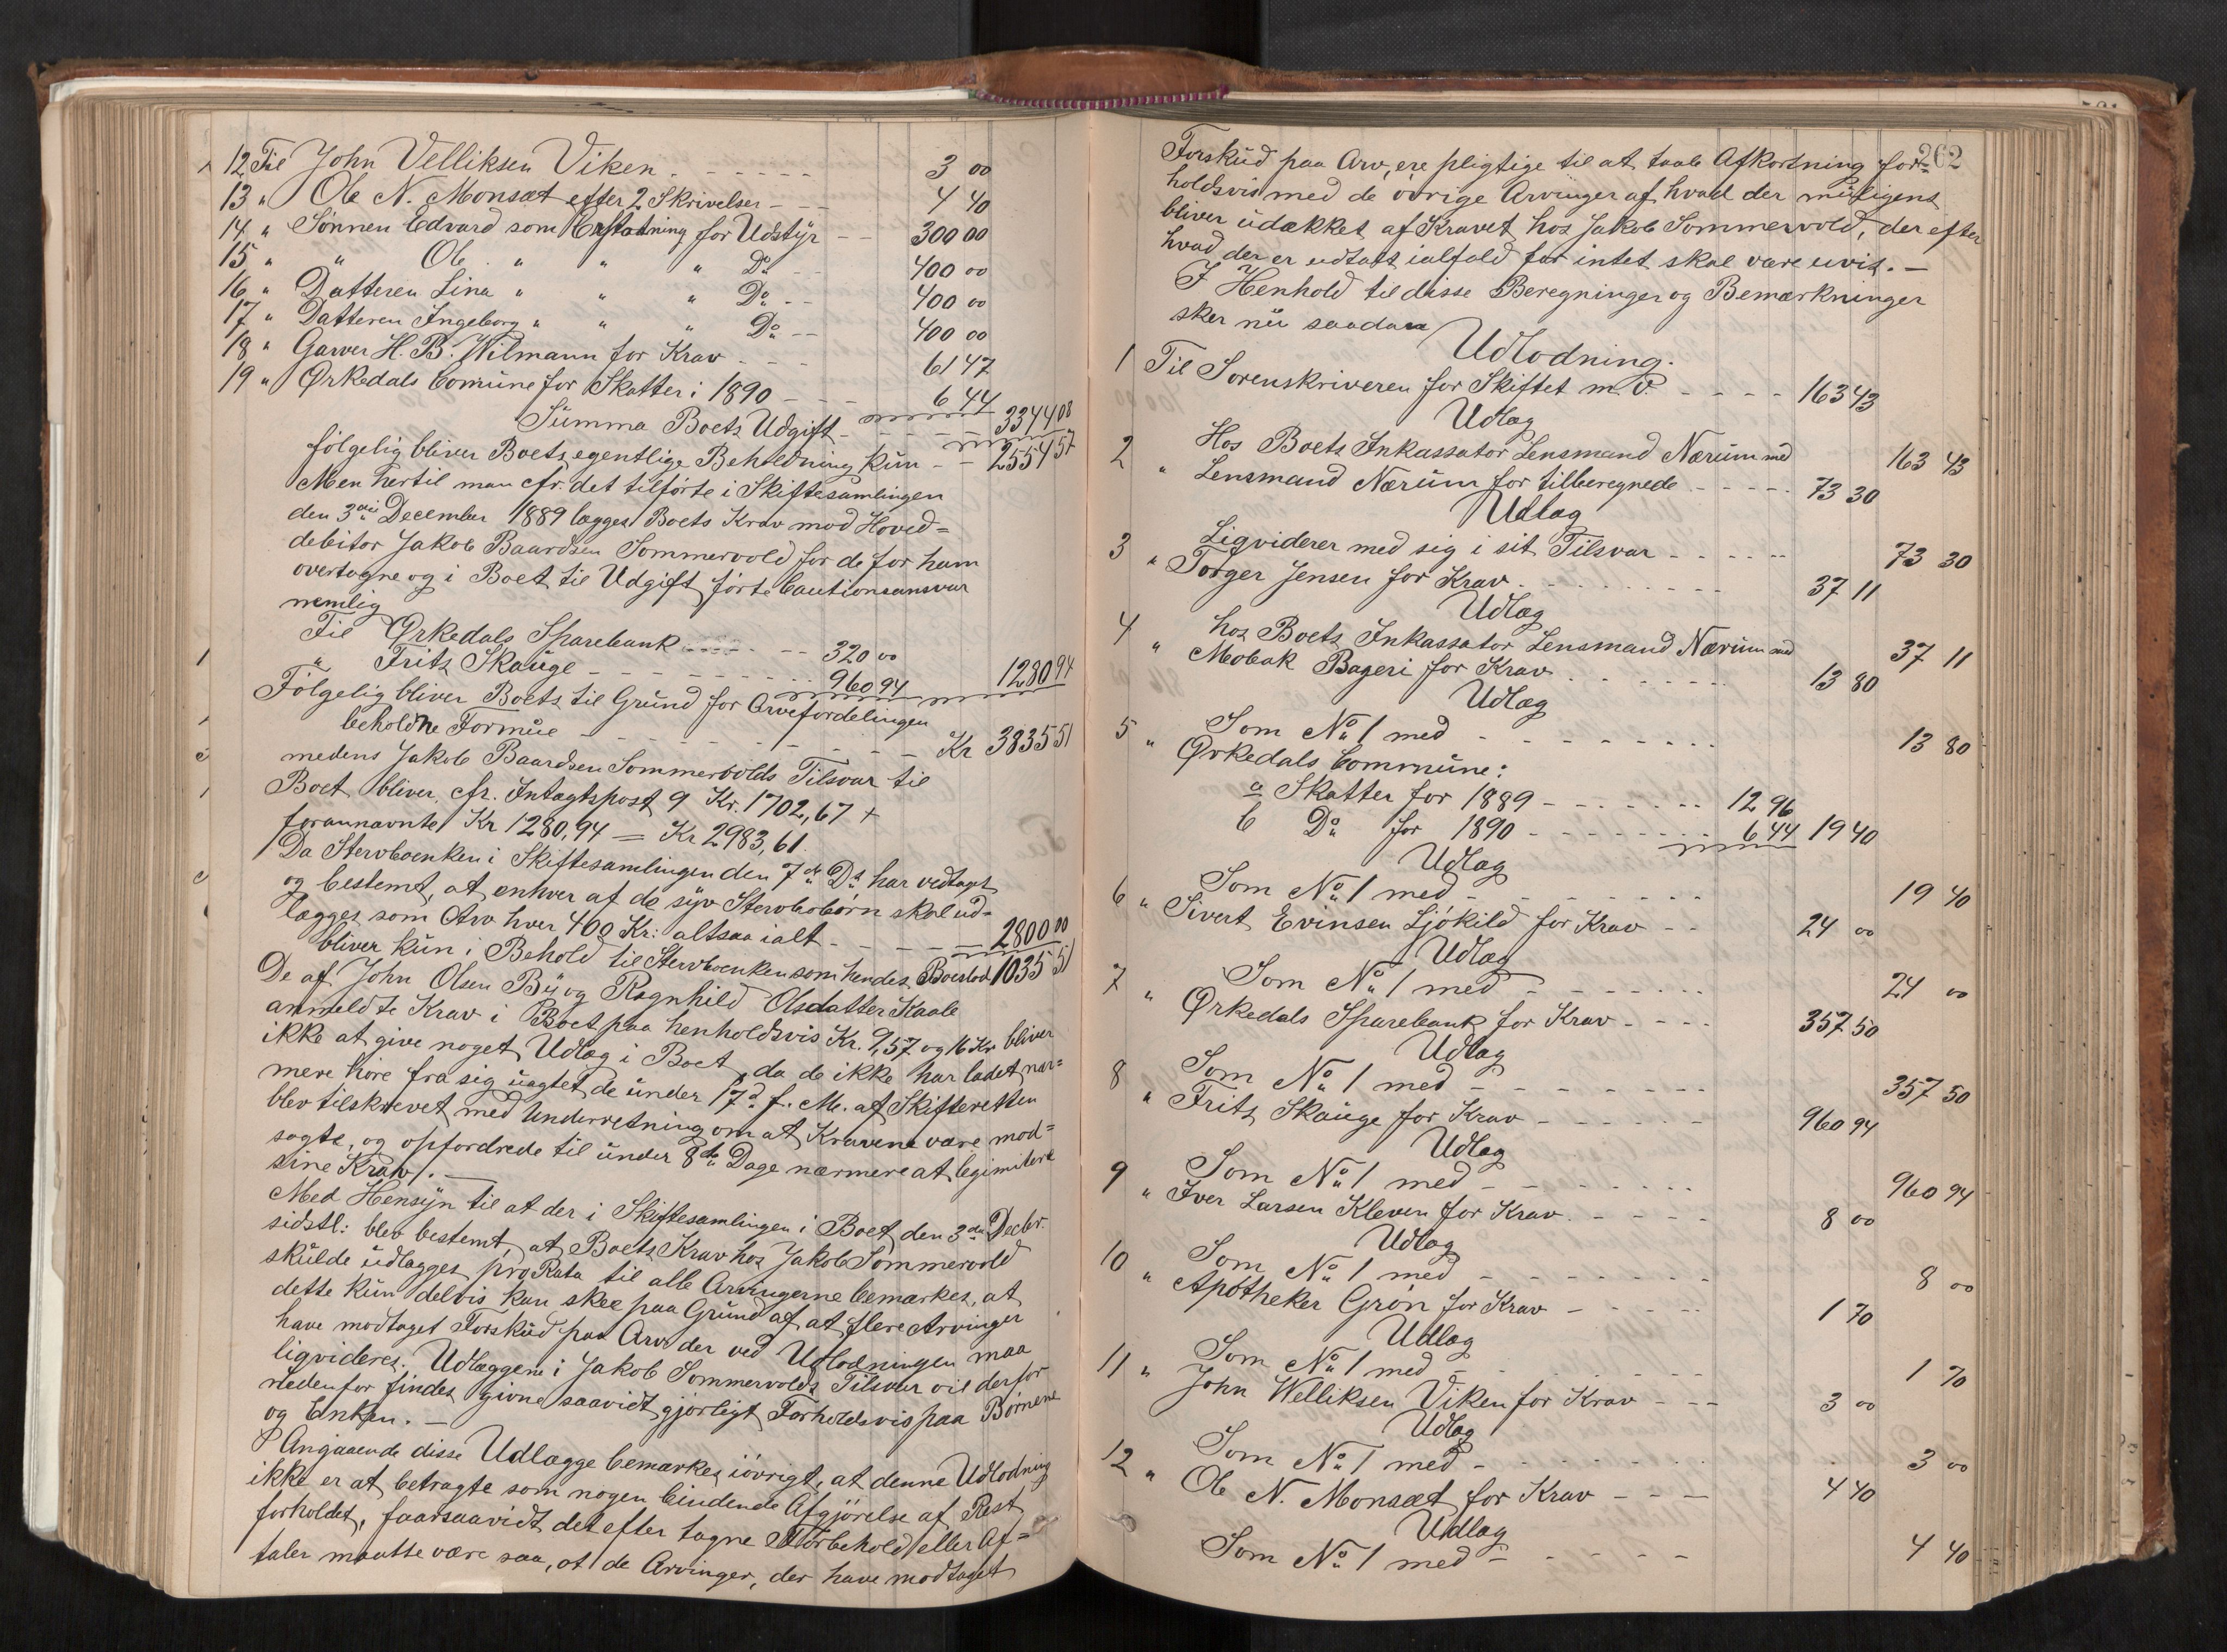 12 Til John Velliksen Viken . - - - - - 3 00
13 " Ole N. Monsæt efter 2 Skrivelser - - - 4 40
14 " Sønnen Edvard som Erstatning for Udstÿr - - 300 00
15 " " Ole " " " Do - - 400 00
16 " Datteren Lina " " " Do - - 400 00
17 " Datteren Ingeborg " " " Do - - 400 00
18 " Garver H. B. Wilmann for Krav - - - 61 47
19 " Ørkedals Comune for Skatter i 1890 - - - 6 44
Summa Boets Udgift - - - - - 3344 08
følgelig bliver Boets egentlige Beholdning kun - - 2554 57
Men hertil maa cfr. det tilførte i Skiftesamlingen
den 3die December 1889 lægges Boets Krav mod Hoved=
debitor Jakob Baardsen Sommervold for de for ham
overtagne og i Boet til Udgift førte Cautionsansvar
nemlig
Til Ørkedals Sparebank - - - - - - 320 00
" Fritz Skauge - - - - - - - - - 960 94 1280 94
Følgelig bliver Boets til Grund for Arvefordelingen
beholdne Formue - - - - - - - - - Kr 3835 51
medens Jakob Baardsen Sommervolds Tilsvar til
Boet bliver, cfr. Intægtspost 9 Kr. 1702,67 +
forannævnte Kr 1280,94 = Kr 2983,61.
Da Stervboenken i Skiftesamlingen den 7de Ds har vedtaget
og bestemt, at enhver af de syv Stervbobørn skal ud=
lægges som Arv hver 400 Kr: altsaa ialt - - - - - 2800 00
bliver kun i Behold til Stervboenken som hendes Boeslod 1035 51
De af John Olsen Bÿ og Ragnhild Olsdatter Kaale
anmeldte Krav i Boet paa henholdsvis Kr. 9,57 og 16 Kr bliver
ikke at give noget Udlæg i Boet, da de ikke har ladet nær=
mere høre fra sig uagtet de under 17d. f. M. af Skifteretten
blev tilskrevet med Underretning om at Kravene vare mod=
sagte, og opfordrede til under 8de Dage nærmere at legimitere
sine Krav. -
Med Hensyn til at der i Skiftesamlingen i Boet den 3die Decbr.
sidstl: blev bestemt, at Boets Krav hos Jakob Sommervold
skulde udlægges pro Rata til alle Arvingerne bemærkes, at
dette kun delvis kan skee paa Grund af at flere Arvinger
have modtaget Forskud paa Arv der ved Udlodningen maa
ligvideres. Udlæggene i Jakob Sommervolds Tilsvar vil derfor
nedenfor findes givne saavidt gjørligt Forholdsvis paa Børnene
og Enken. -
Angaaende disse Udlægge bemærkes iøvrigt, at denne Udlodning
ikke er at betragte som nogen bindende Afgjørelse af Rest
forholdet, faarsaavidt det efter tagne Forbehold eller Af=
taler maatte være saa, at de Arvinger, der have modtaget
262
Forskud paa Arv, ere pligtige til at taale Afkortning for=
holdsvis med de øvrige Arvinger af hvad der muligens
bliver udækket af Kravet hos Jakob Sommervold, der efter
hvad der er udtalt ialfald for intet skal være uvis. -
I Henhold til disse Beregninger og Bemærkninger
sker nu saadan
Udlodning.
1 Til Sorenskriveren for Skiftet m. V. - - - - 163 43
Udlæg
Hos Boets Inkassator Lensmand Nærum med 163 43
2 " Lensmand Nærum for tilberegnede - - - - - 73 30
Udlæg
Ligviderer med sig i sit Tilsvar - - - - - 73 30
3 " Torger Jensen for Krav . - - - - - - - - 37 11
Udlæg
hos Boets Inkassator Lensmand Nærum med 37 11
4 " Mobak Bageri for Krav . - - - - - - 13 80
Udlæg
Som No 1 med - - - - - - - - 13 80
5 " Ørkedals Commune:
a Skatter for 1889 - - - - - - 12 96
b Do for 1890 - - - - - - - 6 44 19 40
Udlæg
Som No 1 med - - - - - - - 19 40
6 " Sivert Evinsen Ljøkild for Krav - - 24 00
Udlæg
Som No 1 med - - - - - - 24 00
7 " Ørkedals Sparebank for Krav - - - - 357 50
Udlæg
Som No 1 med - - - - - - - 357 50
8 " Fritz Skauge for Krav - - - - - - 960 94
Udlæg
Som No 1 med - - - - - - - 960 94
9 " Iver Larsen Kleven for Krav. - - - - - 8 00
Udlæg
Som No 1 med - - - - - - - 8 00
10 " Apotheker Grøn for Krav - - - - - 1 70
Udlæg
Som No 1 med - - - - - - - 1 70
11 " John Welliksen Viken for Krav - - - 3 00
Udlæg
Som No 1 med - - - - - - - 3 00
12 " Ole N. Monsæt for Krav - - - - 4 40
Udlæg
Som No 1 med - - - - - - 4 40